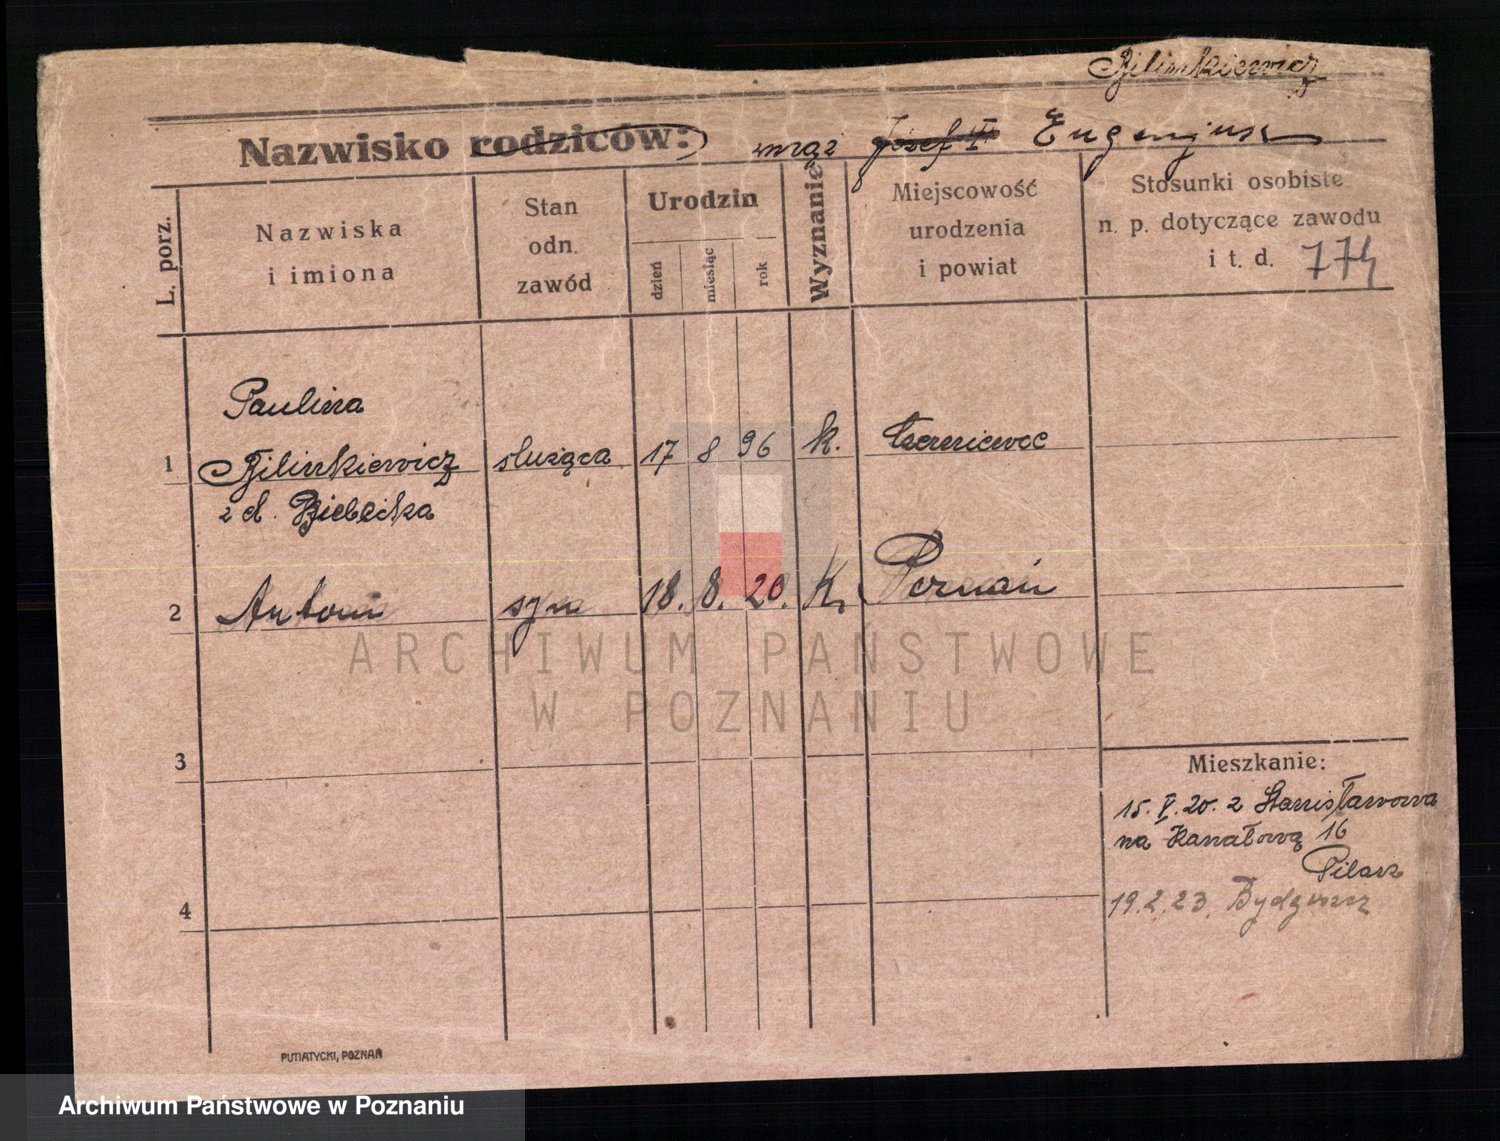 Bilinkiewicz
Nazwisko rodziców: mąż Józef Eugenjusz
L. porz.
Nazwiska
i imiona
Stan
odn.
zawód
Urodzin
dzień
miesiąc
rok
Wyznanie
Miejscowość
urodzenia
i powiat
Stosunki osobiste
n. p. dotyczące zawodu
i t. d. 774
Paulina
1 Bilinkiewicz służąca 17 8 96 k. Czerniewoc
z d. Bielecka
2 Antoni syn 18. 8. 20. K. Poznań
3
Mieszkanie:
15. V. 20. z Stanisławowa
na Kanałową 16
Pilarz
4
19.2.23. Bydgoszcz
PUTIATYCKI, POZNAŃ
ARCHIWUM PAŃSTWOWE
W POZNANIU
Archiwum Państwowe w Poznaniu